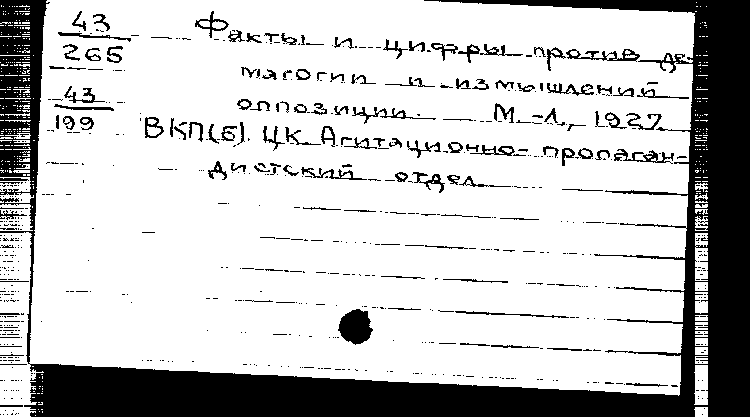 43 Факты и цифры против де-
265 магогии и измышлений
43 оппозиции. М.-Л., 1927.
199 ВКП(б). ЦК. Агитационно-пропаган-
дистский отдел.